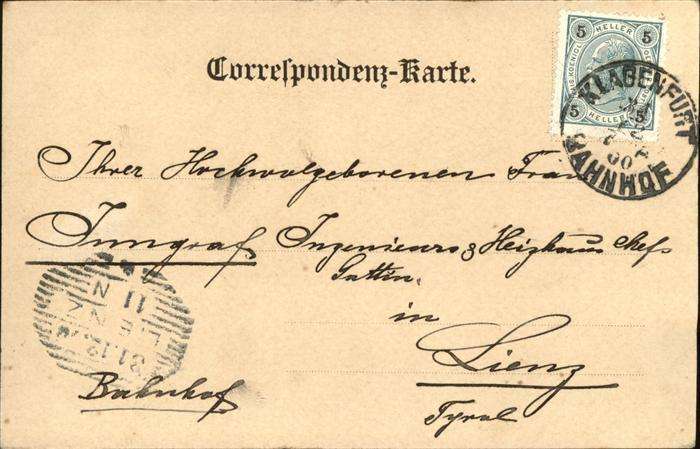 Correspondenz-Karte.
5 HELLER 5
5 HELLER 5
KLAGENFURT
00
BAHNHOF
Ihrer Hochwolgeborenen Frau
Inngraf Ingenieurs & Heizhaus Chefs
Gattin
in
Lienz
Tyrol
Bahnhof
LIENZ
31.12.
11 N